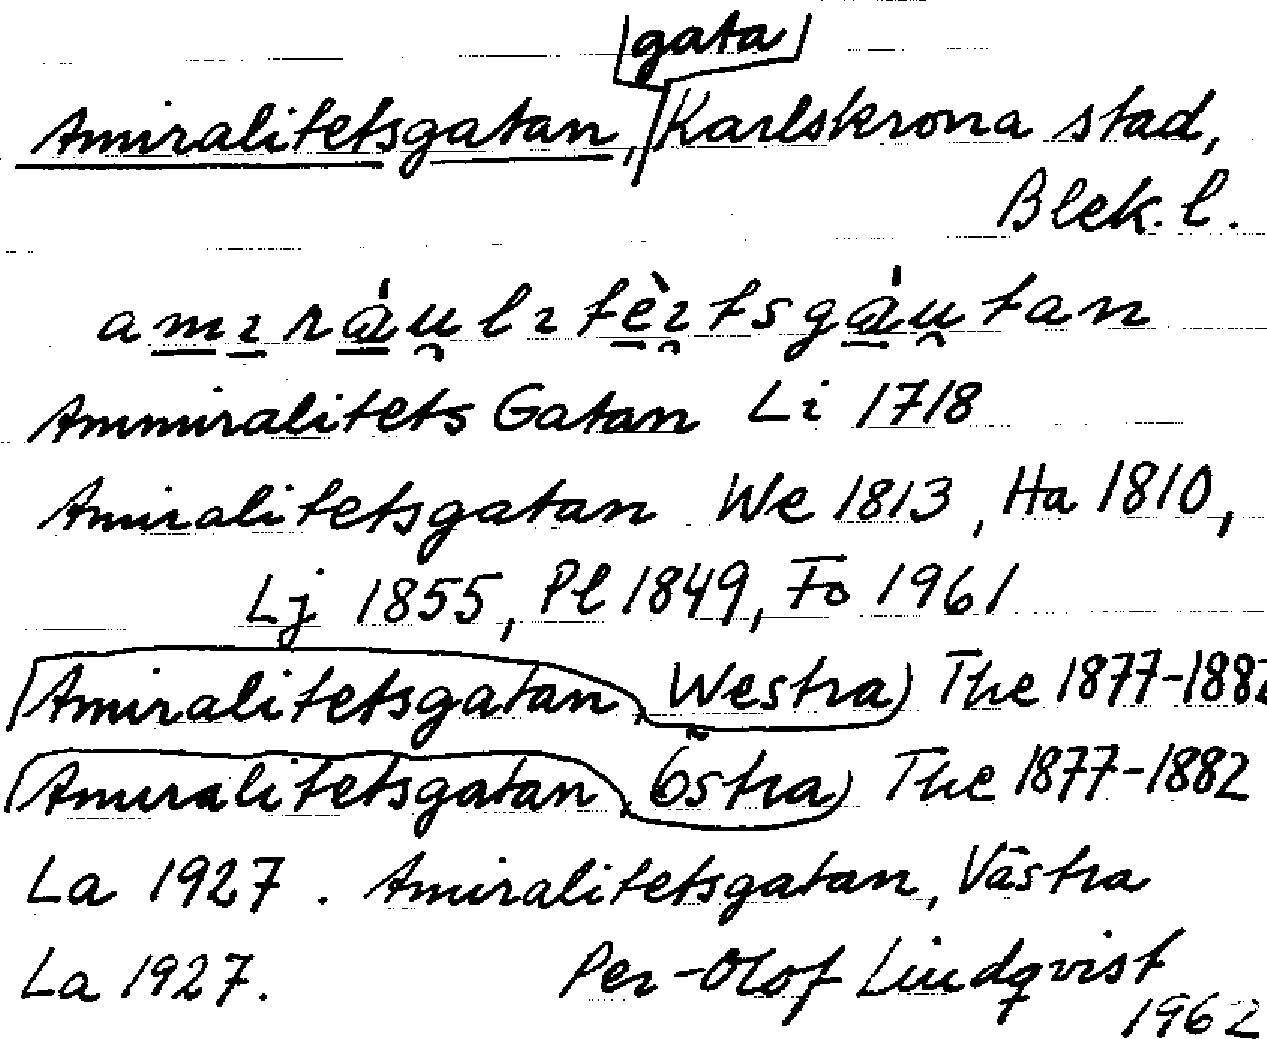 gata
Amiralitetsgatan, Karlskrona stad,
Blek. l.
Ammiralitets Gatan Li 1718
Amiralitetsgatan We 1813, Ha 1810,
Lj 1855, Pl 1849, Fo 1961
Amiralitetsgatan, Westra The 1877-1882
Amiralitetsgatan, Östra The 1877-1882
La 1927. Amiralitetsgatan, Västra
La 1927. Per-Olof Lindqvist
1962